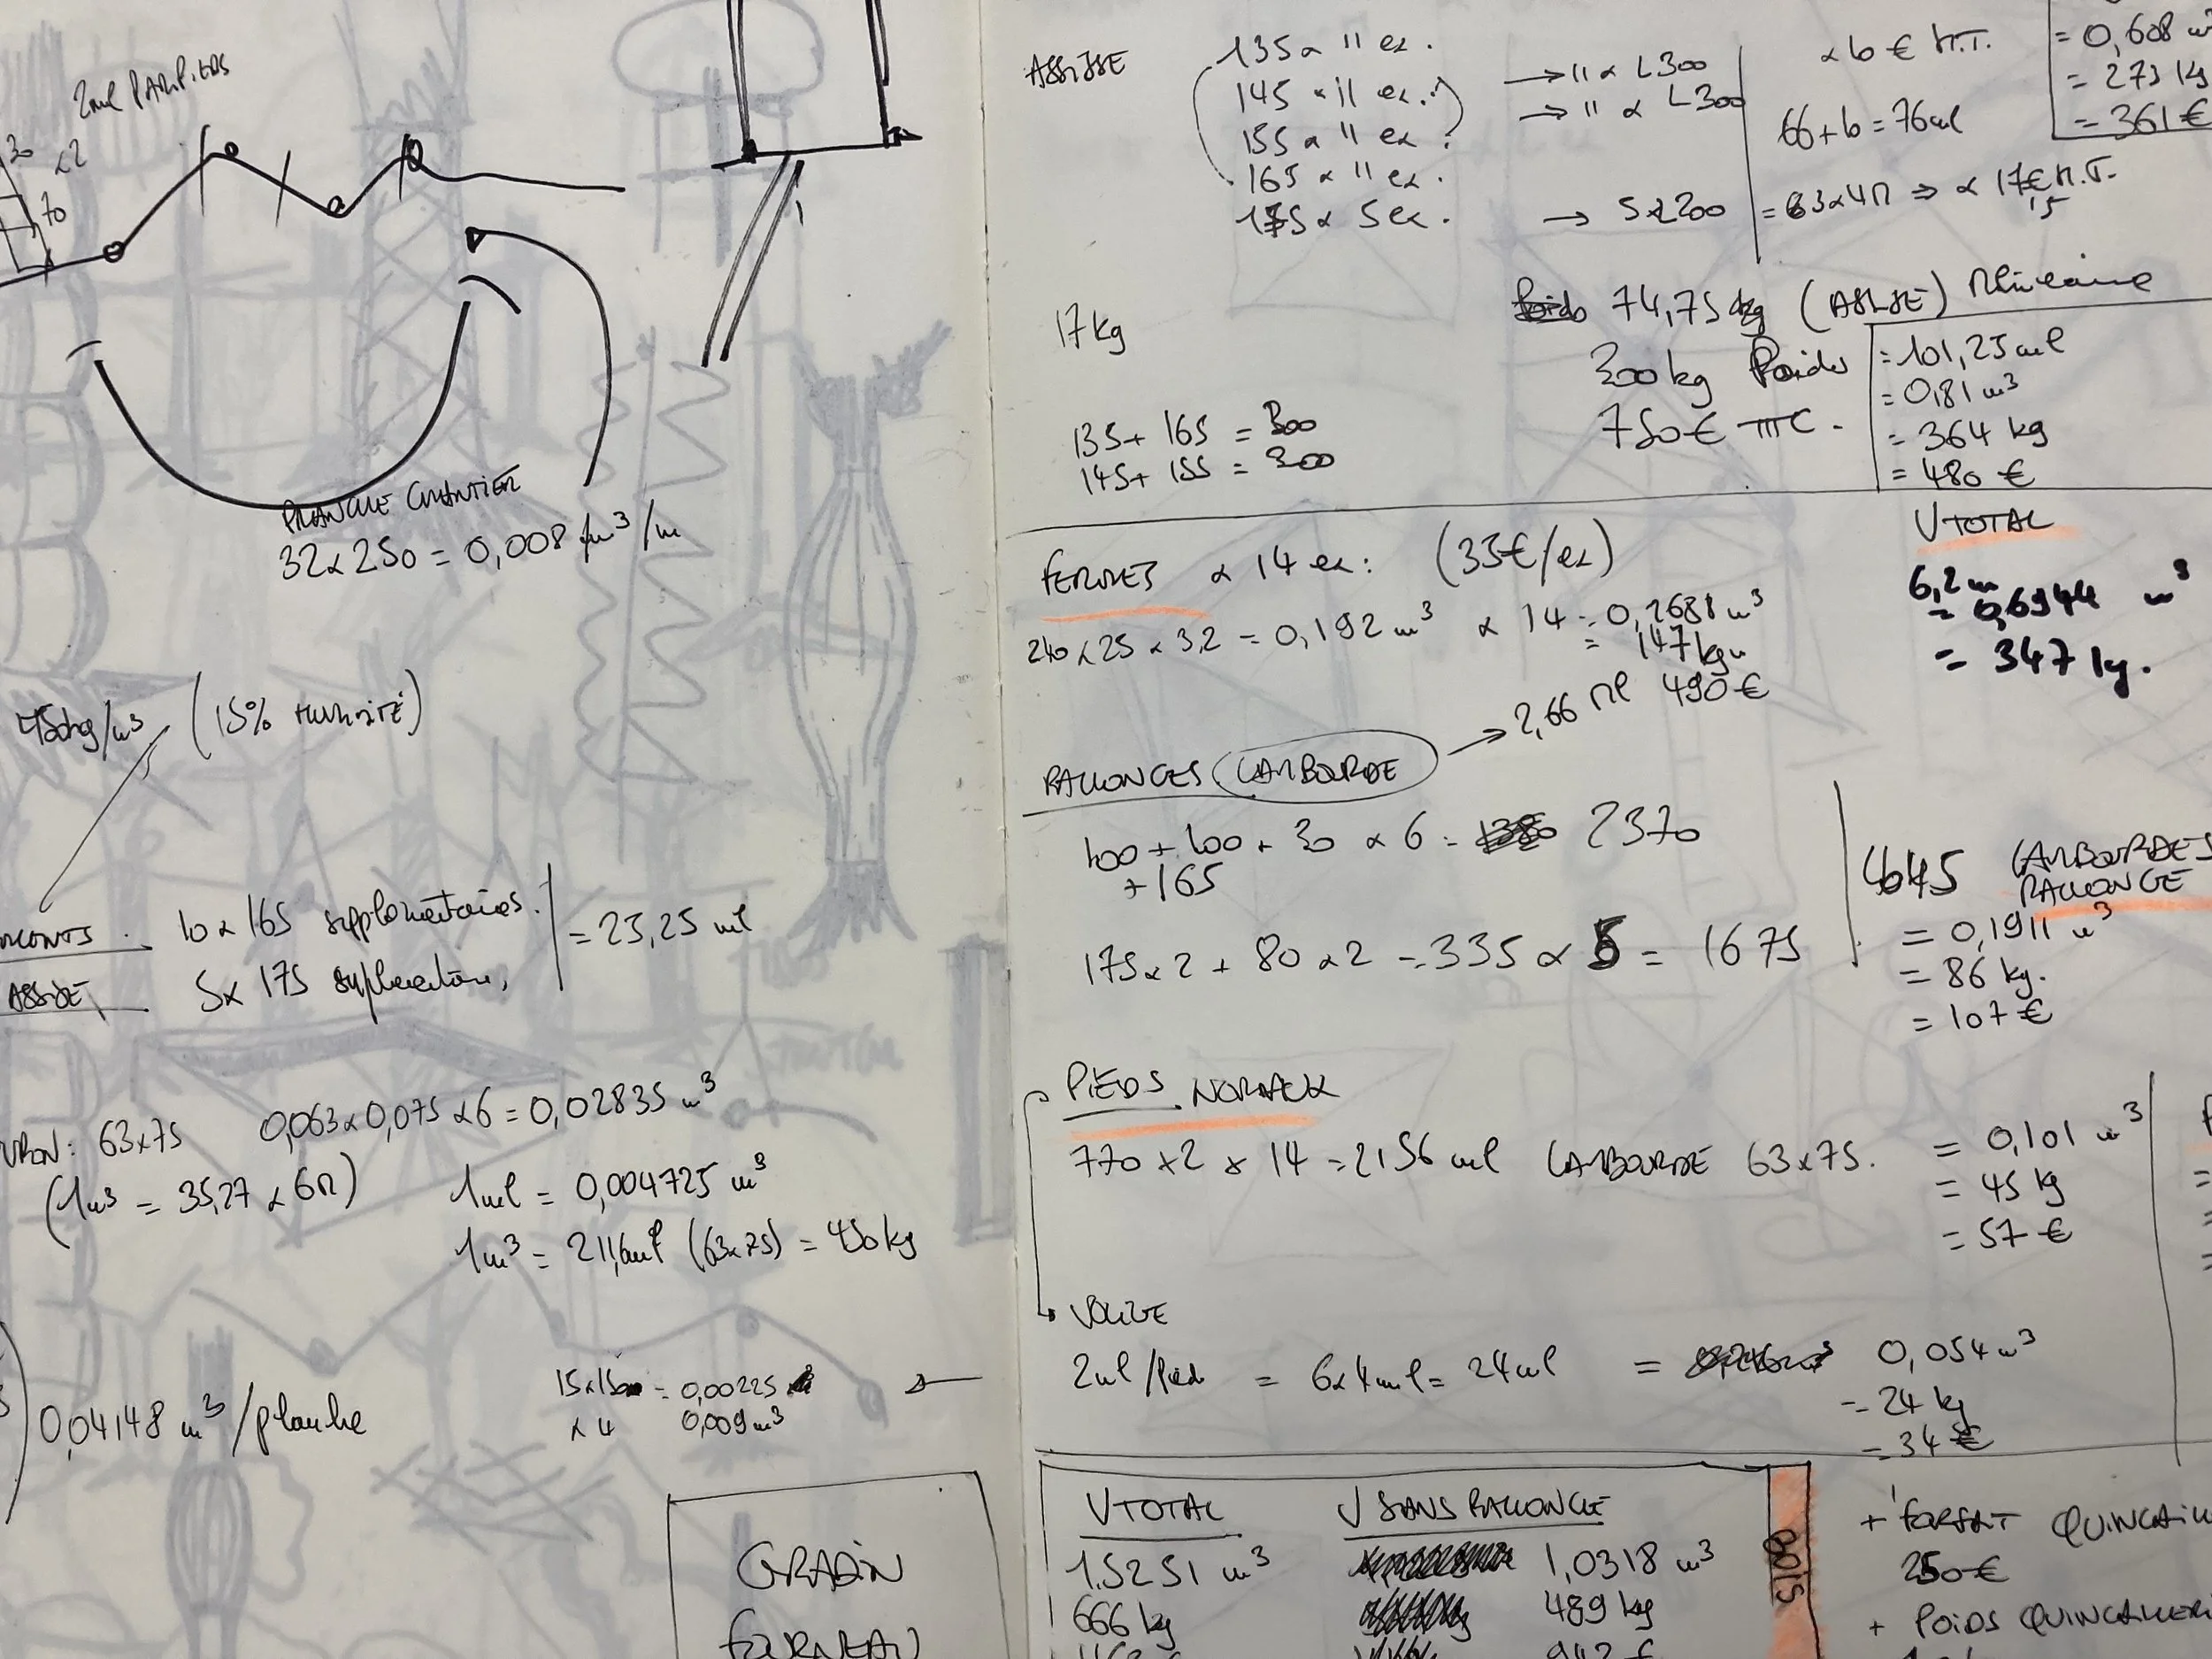 2ml PAR PIEDS
30
x2
70
PLANCHE CHANTIER
32x250 = 0,008 m³/m
450kg/m³ (15% HUMIDITÉ)
10 x 165 supplementaires.
= 23,25 ml
ASSISE 5x 175 supplementaire,
63x75 0,063x0,075 x6 = 0,02835 m³
(1m³ = 35,27 x 6M)
1ml = 0,004725 m³
1m³ = 211,6ml (63x75) = 450kg
0,04148 m³/planche
15x150 = 0,00225
x 4 0,009m³
GRADIN
FOURNEAU
ASSISE
135 x 11 ex.
145 x 11 ex.
155 x 11 ex.
165 x 11 ex.
175 x 5 ex.
→ 11 x L300
→ 11 x L300
→ 5xL200
x 10 € H.T.
66+10 = 76ml
= 63x4M ⇒ x 17€ H.T.
15
= 0,608 m³
= 273 kg
= 361 €
17kg
74,75 kg (ASSISE)
300kg Poids
750€ TTC.
= 101,25ml
= 0,81 m³
= 364 kg
= 480 €
135+ 165 = 300
145+ 155 = 300
FERMES x 14 ex: (35€/ex)
240 x 25 x 3,2 = 0,192 m³ x 14 = 0,2688 m³
= 147kg
490€
V TOTAL
6,2m
= 0,6944 m³
= 347 kg.
RALLONGES LAMBOURDE → 2,66 ml
100 + 100 + 30 x 6 = 2370
+165
175x2 + 80x2 = 335 x 5 = 1675
4045 LAMBOURDES
RALLONGE
= 0,1911 m³
= 86 kg.
= 107 €
PIEDS NORMAUX
770 x2 x 14 = 2156 ml LAMBOURDE 63x75.
= 0,101 m³
= 45 kg
= 57 €
VOLIGE
2ml/pied = 6x4ml = 24ml = 0,054 m³
= 24 kg
= 34 €
V TOTAL
1.5251 m³
666 kg
V SANS RALLONGE
1,0318 m³
489 kg
942 €
BOIS
+ FORFAIT QUINCAILL
250€
+ POIDS QUINCAILLERI